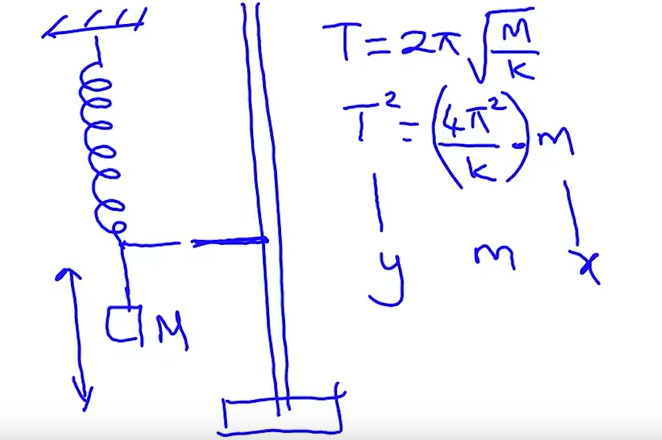 T = 2π √(M/K)
T² = (4π²/K) · m
y m x
M